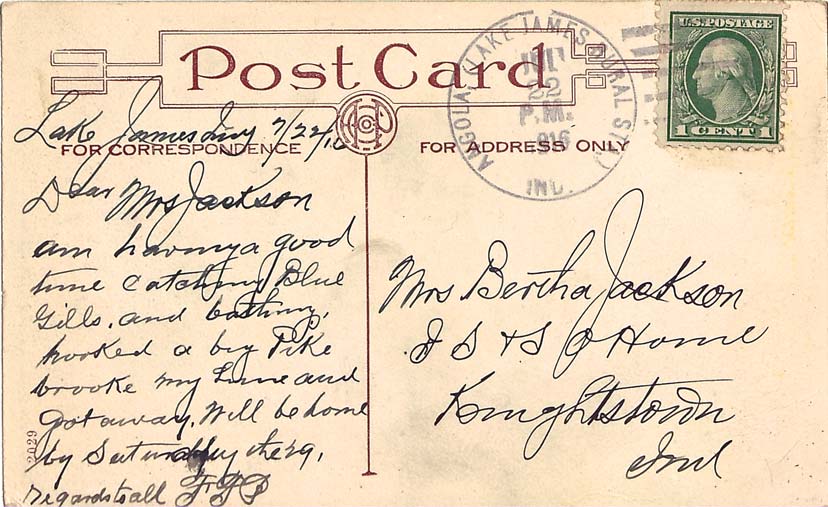 Post Card
FOR CORRESPONDENCE
FOR ADDRESS ONLY
ANGOLA, (LAKE JAMES RURAL STA.)
JUL
22
P.M.
1916
IND.
U.S. POSTAGE
1 CENT 1
Lake James Ind 7/22/16
Dear Mrs Jackson
am having a good
time Catching Blue
Gills. and bathing,
hooked a big Pike
brooke my Line and
got away. Will be home
by Saturday the 29,
regards to all
Mrs Bertha Jackson
I S & S O Home
Knightstown
Ind
2029